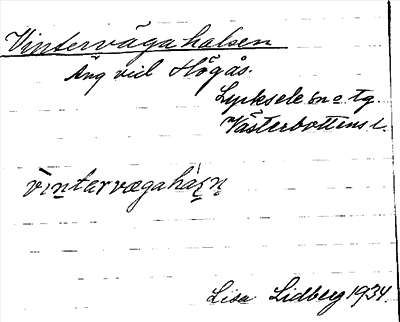 Vintervägahalsen
Äng vid Högås.
Lycksele sn o tg.
Västerbottens l.
vintarvægahaʃn
Lisa Lidberg 1934.